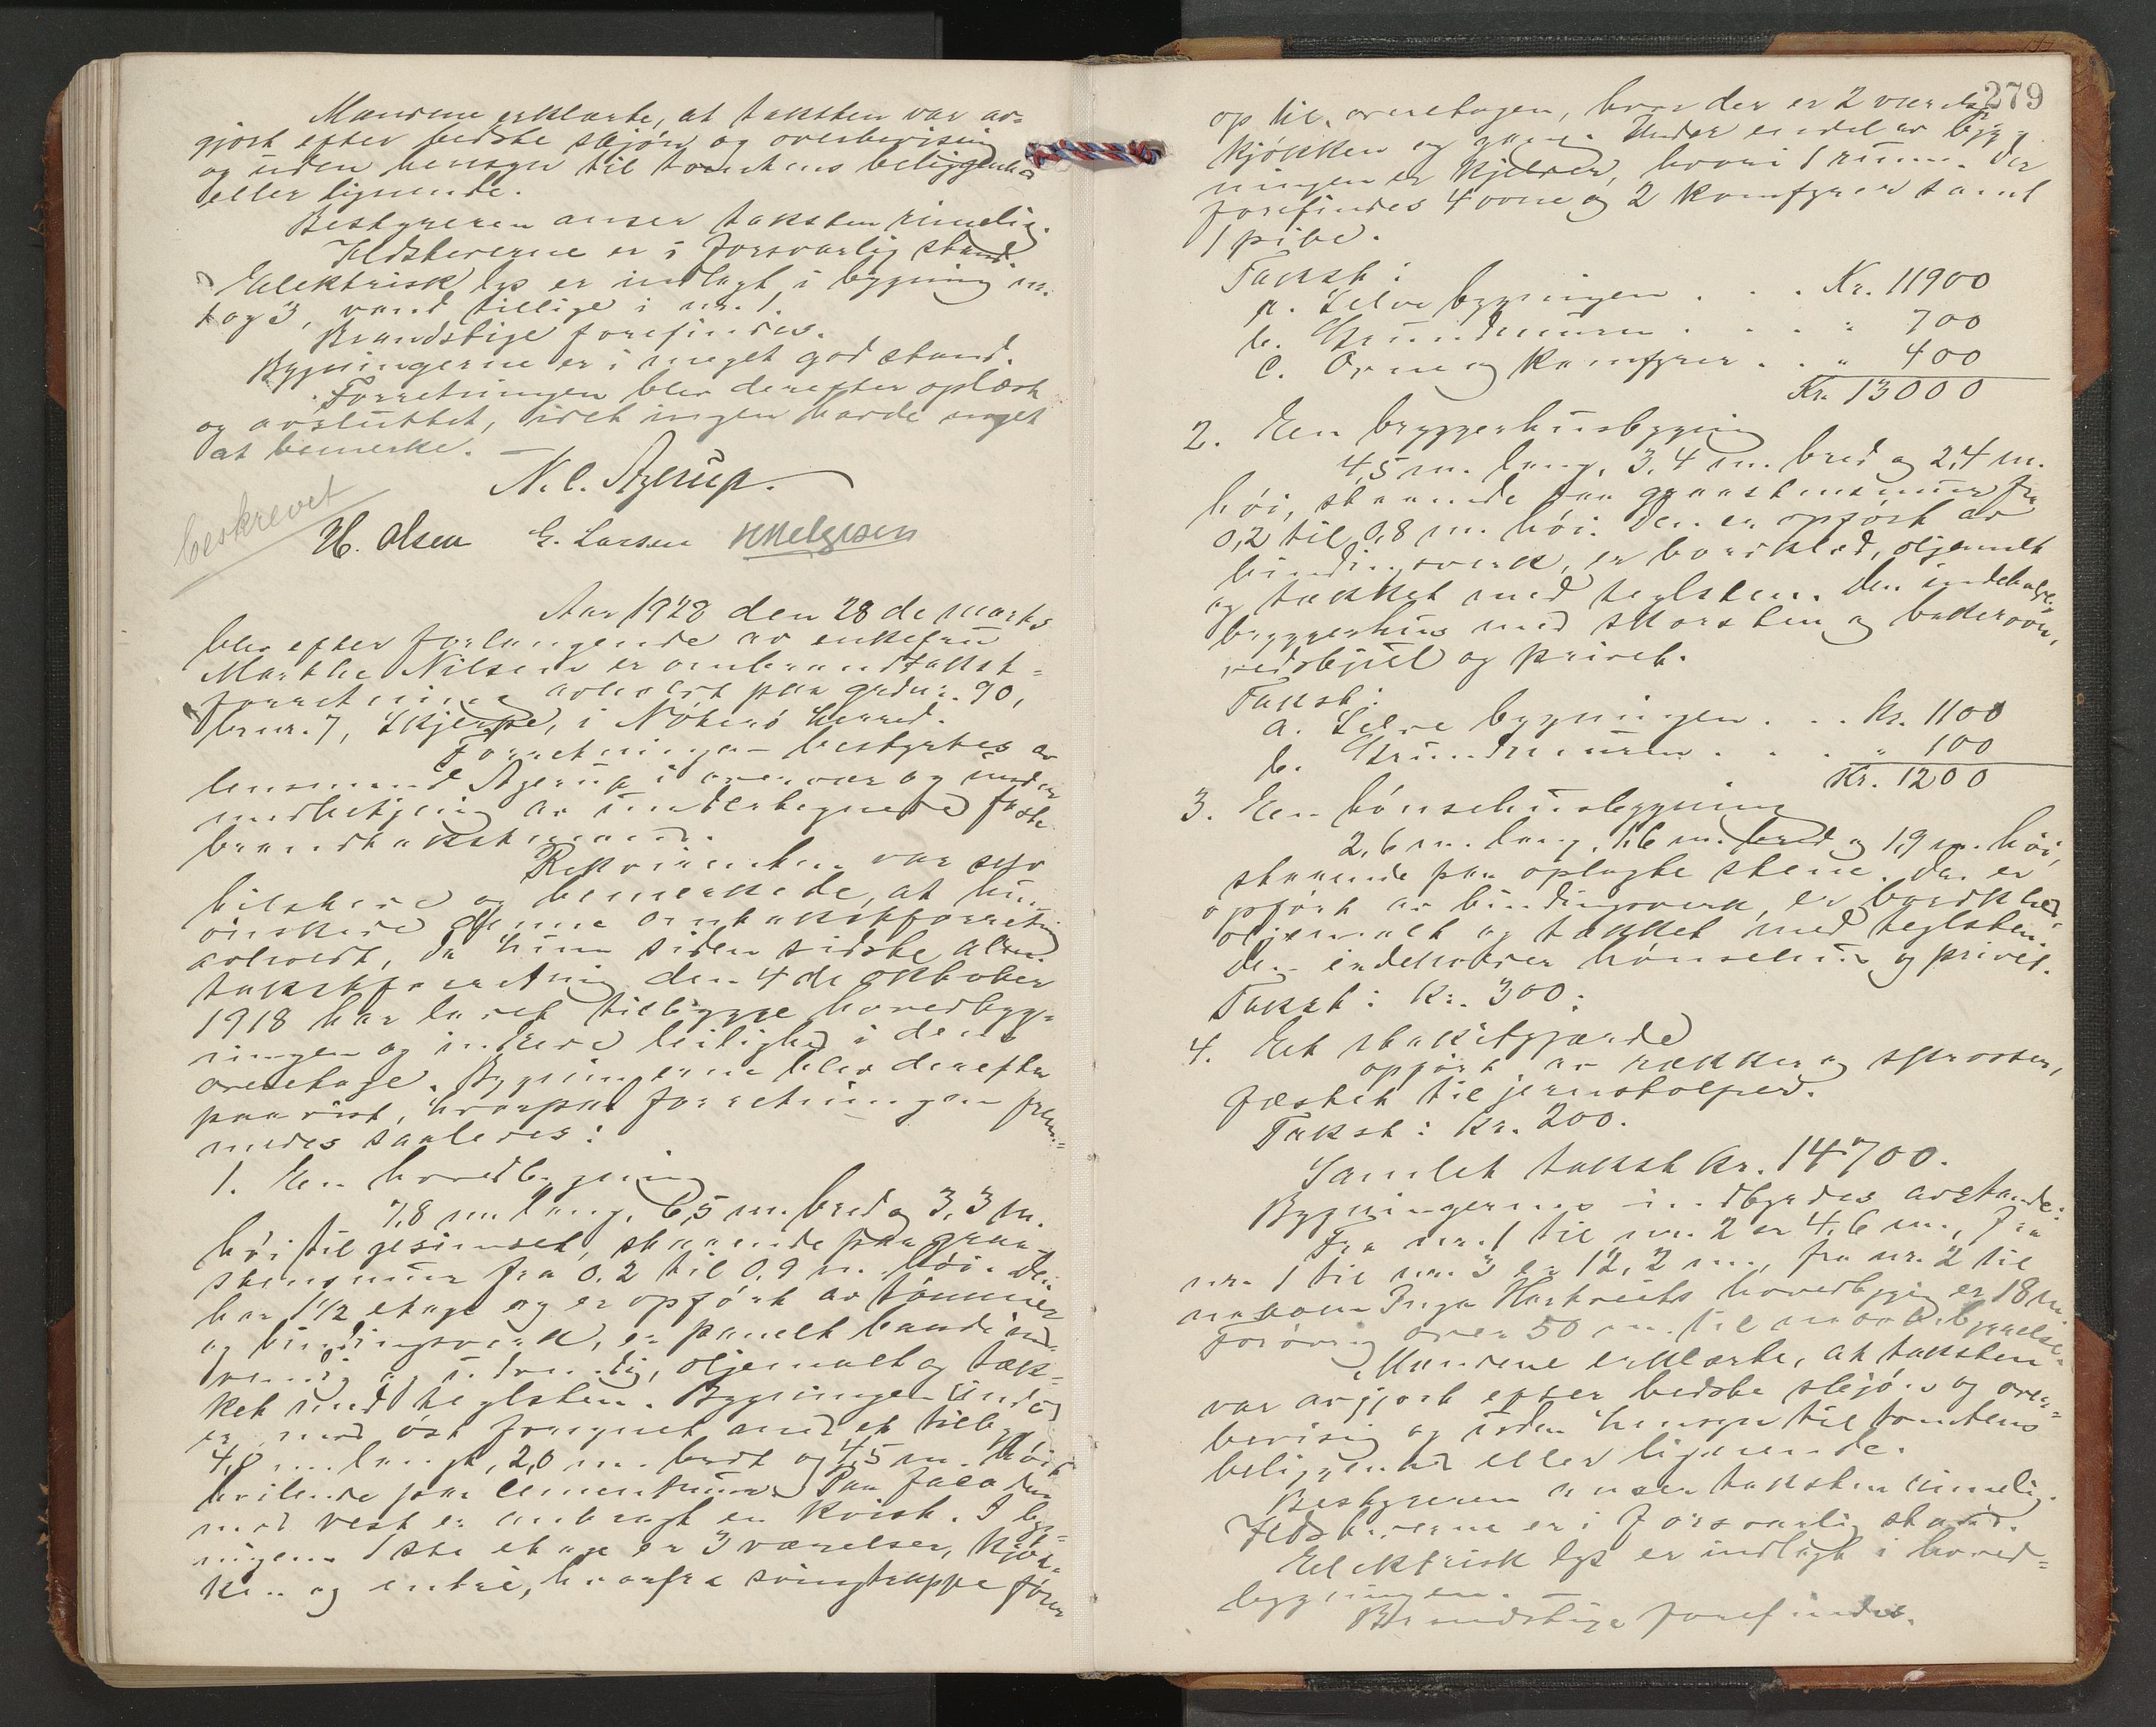 Mændene erklærte, at taksten var av=
gjort efter bedste skjøn og overbevisning
og uden hensyn til tomtens beliggenhed
eller lignende.
Bestyreren anser taksten rimelig.
Ildstederne er i forsvarlig stand.
Elektrisk lys er indlagt i bygning nr.
1 og 3, vand tillige i nr. 1.
Brandstige forefindes.
Bygningerne er i meget god stand.
Forretningen blev derefter oplæst
og avsluttet, idet ingen havde noget
at bemerke. —
N. C. Agerup.
beskrevet
H. Olsen E. Larsen H Helgesen
Aar 1928 den 28de marts
blev efter forlangende av enkefru
Marthe Nilsen en ombrandtakst=
forretning avholdt paa gaardsnr. 90,
brnr. 7, Skjerpe, i Nøterø herred.
Forretningen bestyrtes av
lensmand Agerup i overvær og under
medvirkning av undertegnede faste
brandtakstmænd.
Rekvirenten var selv
tilstede og bemerkede, at hun
ønskede denne omtakstforretning
avholdt, da hun siden sidste alm.
takstforretning den 4de oktober
1918 har latt tilbygge hovedbyg=
ningen og indrede leilighet i dens
overetage. Bygningerne blev derefter
paavist, hvorpaa forretningen frem=
medes saaledes:
1. En hovedbygning
7,8 m. lang, 6,5 m. bred og 3,3 m.
høi til gesimset, staaende paa graa=
stensmur fra 0,2 til 0,9 m. høi. Den
har 1½ etage og er opført av tømmer
og bindingsverk, er panelt baade ind=
vendig og utvendig, oljemalt og tæk=
ket med teglsten. Bygningen under
er mod øst forsynet med et tilbyg
4,0 m. langt, 2,0 m. bredt og 4,5 m. høit
hvilende paa cementmur. Paa facaden
mod vest er anbragt en kvist. I byg=
ningens 1ste etage er 3 værelser, kjøk=
ken og entré, hvorfra svingtrappe fører
279
op til overetagen, hvor der er 2 værelser
kjøkken og gang. Under endel av byg=
ningen er kjelder, hvori 1 rum. Der
forefindes 4 ovne og 2 komfyrer samt
1 pibe.
Takst:
a. Selve bygningen . . . Kr. 11900
b. Grundmuren . . . . " 700
c. Ovne og komfyrer . . " 400
Kr. 13000
2. En bryggerhusbygning
4,5 m. lang, 3,4 m. bred og 2,4 m.
høi, staaende paa graastensmur fra
0,2 til 0,8 m. høi. Den er opført av
bindingsverk, er bordklæd, oljemalt
og tækket med teglsten. Den indeholder
bryggerhus med skorsten og bakerovn,
vedskjul og privet.
Takst:
a. Selve bygningen . . . Kr. 1100
b. Grundmuren . . . . " 100
Kr. 1200
3. En hønsehusbygning
2,6 m. lang, 1,6 m. bred og 1,9 m. høi,
staaende paa oplagte stene. Den er
opført av bindingsverk, er bordklæd,
oljemalt og tækket med teglsten.
Den indeholder hønsehus og privet.
Takst: Kr. 300:
4. Et stakitgjærde
opført av rækker og sprosser,
fæstet til jernstolper.
Takst: Kr. 200.
Samlet takst Kr. 14700.
Bygningernes indbyrdes avstande:
Fra nr. 1 til nr. 2 er 4,6 m., fra
nr. 1 til nr. 3 er 12,2 m., fra nr. 2 til
naboen Inga hovedbygning er 18 m
forøvrig over 50 m. til nabobebyggelse.
Mændene erklærte, at taksten
var avgjort efter bedste skjøn og over=
bevisning og uden hensyn til tomtens
beliggenhed eller lignende.
Bestyreren anser taksten rimelig.
Ildstederne er i forsvarlig stand.
Elektrisk lys er indlagt i hoved=
bygningen.
Brandstige forefindes.